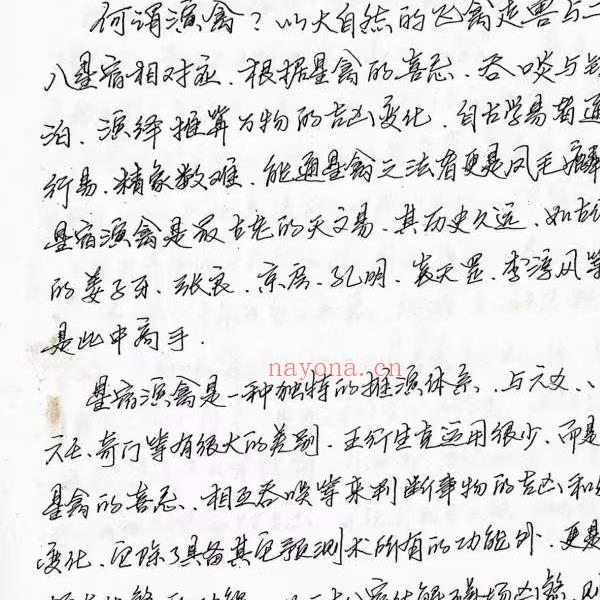 何谓演禽？以大自然的飞禽走兽与二
八星宿相对应．根据星禽的喜忌．吞啖与
泊．演绎推算万物的吉凶变化．自古学易者通
行易．精象数难．能通星禽之法者更是凤毛麟
星宿演禽是最古老的天文易．其历史久远．如古
的姜子牙．张良．京房．孔明．袁天罡．李淳风等
是此中高手．
nayona.cn
星宿演禽是一种独特的推演体系．与六爻、
六壬、奇门等有很大的差别．五行生克运用很少．而是
星禽的喜忌．相互吞啖等来判断事物的吉凶和
变化．它除了具备其它预测术所有的功能外．更是